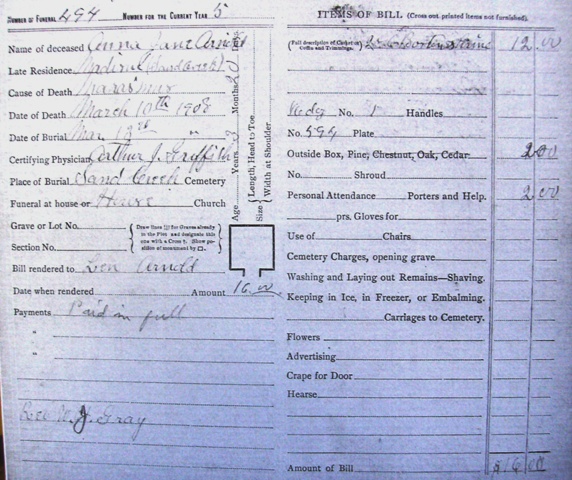 NUMBER OF FUNERAL 494 NUMBER FOR THE CURRENT YEAR 5
Name of deceased Anna Jane Arnold
Late Residence
Cause of Death Marasmus
Date of Death March 10th 1908
Date of Burial Mar 12th "
Certifying Physician Arthur J. Griffith
Place of Burial Sand Creek Cemetery
Funeral at house or House Church
Grave or Lot No.
Section No.
{Draw lines [|] for Graves already in the Plot and designate this one with a Cross †. (Show position of monument by □.)}
Bill rendered to Len Arnold
Date when rendered Amount 16.00
Payments Paid in full
"
"
Rev W. J. Gray
Age Years Months Days
Size {Length, Head to Toe
Width at Shoulder
ITEMS OF BILL (Cross out printed items not furnished.)
(Full description of Casket or Coffin and Trimmings.) 12.00
No. 1 Handles
No. 494 Plate
Outside Box, Pine, Chestnut, Oak, Cedar 2.00
No. Shroud
Personal Attendance Porters and Help. 2.00
prs. Gloves for
Use of Chairs
Cemetery Charges, opening grave
Washing and Laying out Remains—Shaving.
Keeping in Ice, in Freezer, or Embalming.
Carriages to Cemetery.
Flowers
Advertising
Crape for Door
Hearse
Amount of Bill $16.00